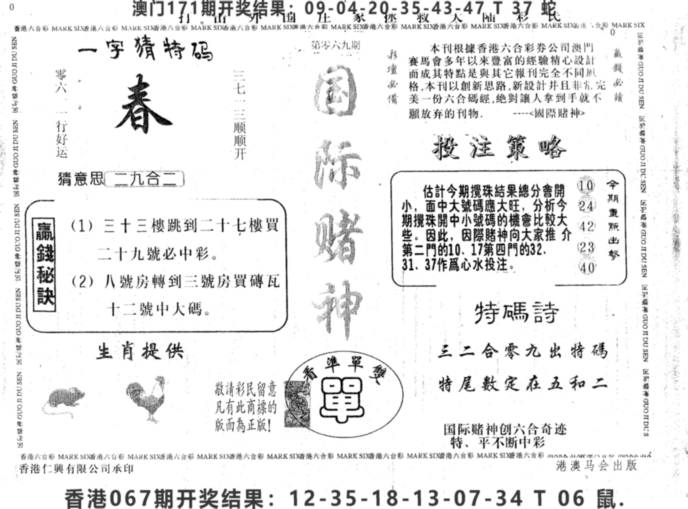 澳门171期开奖结果：09-04-20-35-43-47 T 37 蛇
一字猜特码
春
零六、一行好运
三七一三顺顺开
猜意思 二九合二
贏錢秘訣
(1) 三十三樓跳到二十七樓買
二十九號必中彩。
(2) 八號房轉到三號房買磚瓦
十二號中大碼。
生肖提供
敬請彩民留意
凡有此商標的
版面為正版！
第零六九期
国际赌神
看準單雙
單
彩壇必備
赢钱必读
本刊根據香港六合彩券公司澳門
賽馬會多年以來豐富的經驗精心設計
而成其特點是與其它報刊完全不同風
格，本刊以創新思路，新設計并且非常完
美一份六合碼經，絶對讓人拿到手就不
願放弃的刊物． ----<國際賭神>
投注策略
估計今期攪珠結果總分會開
小，面中大號碼應大旺，分析今
期攪珠開中小號碼的機會比較大
些。因此，因際賭神向大家推介
第二門的10．17第四門的32．
31．37作爲心水投注。
10
24
42
23
40
今期重點出擊
特碼詩
三二合零九出特碼
特尾數定在五和二
国际赌神创六合奇迹
特、平不断中彩
香港仁興有限公司承印
港澳马会出版
香港067期开奖结果：12-35-18-13-07-34 T 06 鼠.